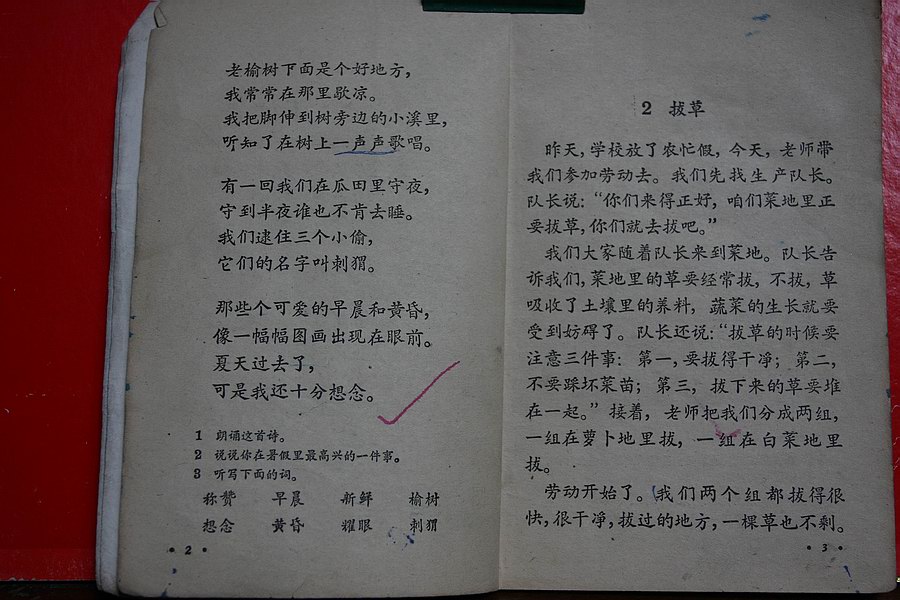 老榆树下面是个好地方，
我常常在那里歇凉。
我把脚伸到树旁边的小溪里，
听知了在树上一声声歌唱。
有一回我们在瓜田里守夜，
守到半夜谁也不肯去睡。
我们逮住三个小偷，
它们的名字叫刺猬。
那些个可爱的早晨和黄昏，
像一幅幅图画出现在眼前。
夏天过去了，
可是我还十分想念。
1 朗诵这首诗。
2 说说你在暑假里最高兴的一件事。
3 听写下面的词。
称赞 早晨 新鲜 榆树
想念 黄昏 耀眼 刺猬
·2·
2 拔草
昨天，学校放了农忙假，今天，老师带
我们参加劳动去。我们先找生产队长。
队长说：“你们来得正好，咱们菜地里正
要拔草，你们就去拔吧。”
我们大家随着队长来到菜地。队长告
诉我们，菜地里的草要经常拔，不拔，草
吸收了土壤里的养料，蔬菜的生长就要
受到妨碍了。队长还说：“拔草的时候要
注意三件事：第一，要拔得干净；第二，
不要踩坏菜苗；第三，拔下来的草要堆
在一起。”接着，老师把我们分成两组，
一组在萝卜地里拔，一组在白菜地里
拔。
劳动开始了。我们两个组都拔得很
快，很干净，拔过的地方，一棵草也不剩。
·3·